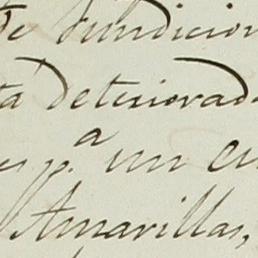 de fundicion
ta deteriorad
a
un cu
Amarillas,